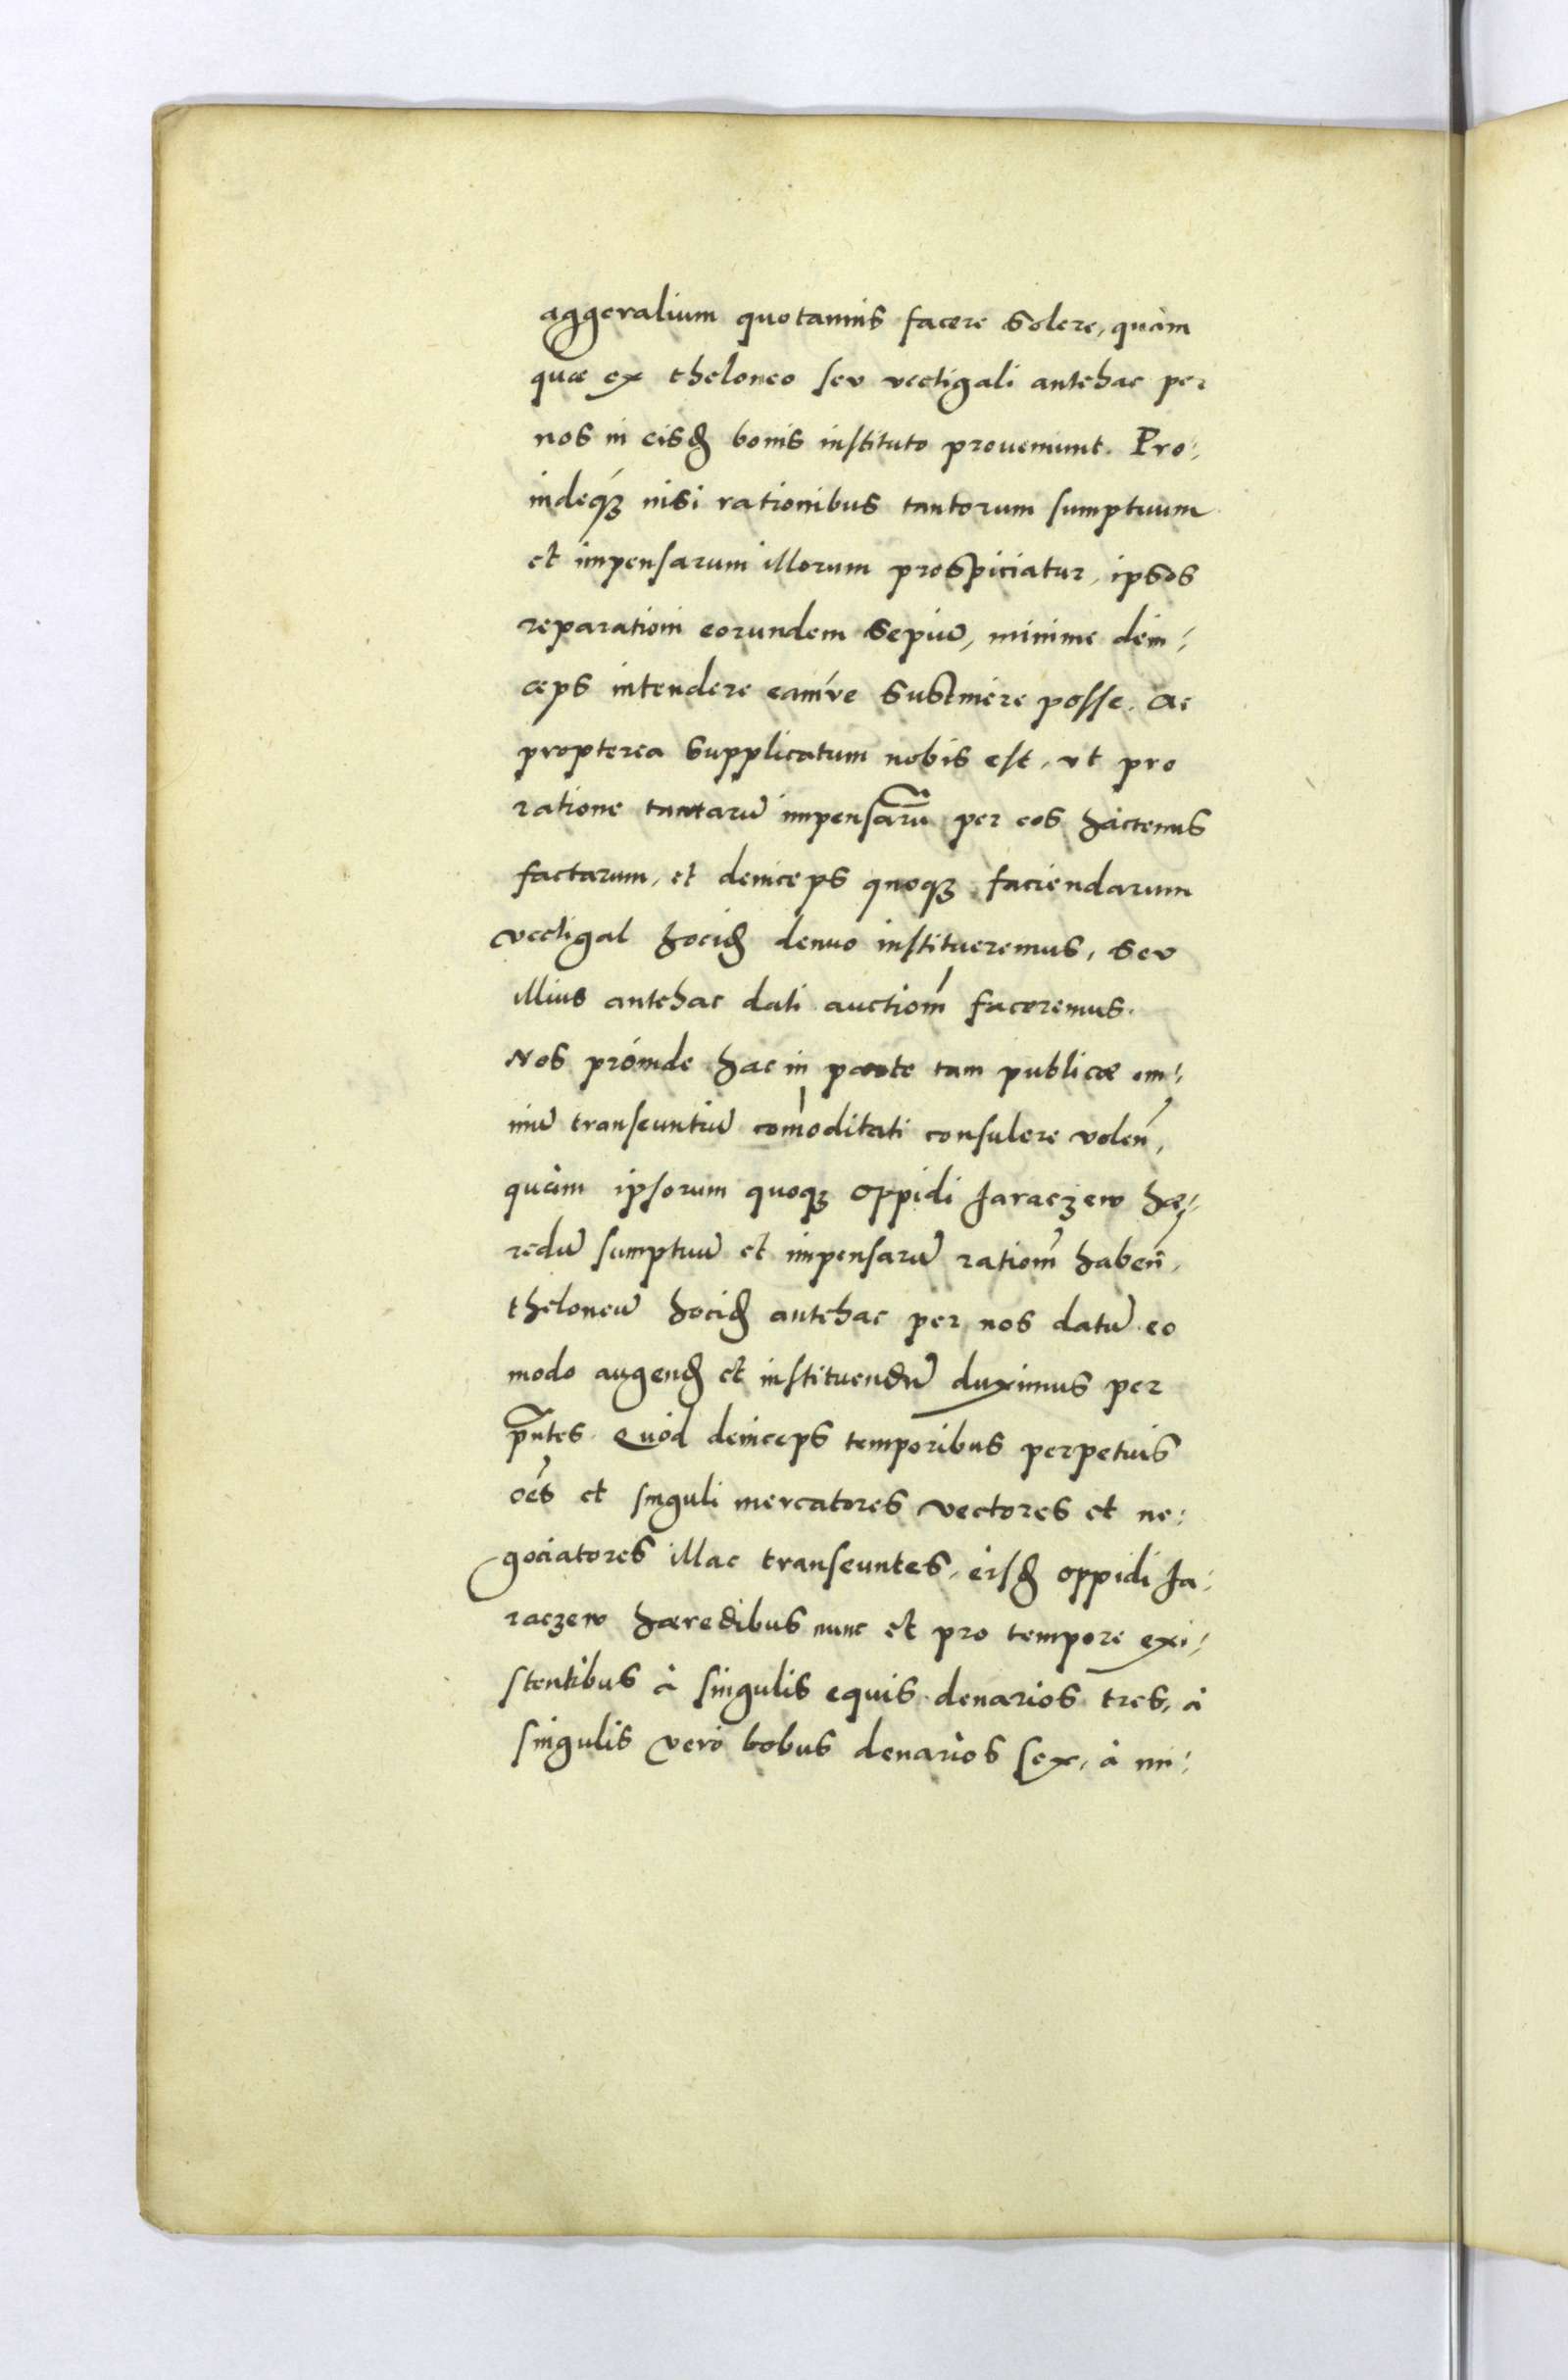 aggeralium quotannis facere solere, quàm
quæ ex theloneo seu vectigali antehac per
nos in eisđ bonis instituto proueniunt. Pro-
indeq́ꝫ nisi rationibus tantorum sumptuum
et impensarum illorum prospiciatur, ipsos
reparationi eorundem sepiū, minime dein-
ceps intendere eamve sustinere posse. Ac
propterea supplicatum nobis est, vt pro
ratione tantarū impensarū per eos hactenus
factarum, et deinceps quoqꝫ faciendarum
vectigal hociđ denuo institueremus, seu
illius antehac dati auctiom̃ faceremus.
Nos proinde hac in parte tam publicæ om-
niū transeuntiū com̃oditati consulere volen̄,
quàm ipsorum quoqꝫ oppidi Jaraczew hæ-
redū sumptuū et impensarū ratiom̃ haben̄,
theloneū hociđ antehac per nos datū eo
modo augenđ et instituendū duximus per
pñtes. Quòd deinceps temporibus perpetuis
oẽs et singuli mercatores vectores et ne-
gociatores illac transeuntes, eisđ oppidi Ja-
raczew hæredibus nunc et pro tempore exi-
stentibus à singulis equis denarios tres, à
singulis verò bobus denarios sex, à mi-